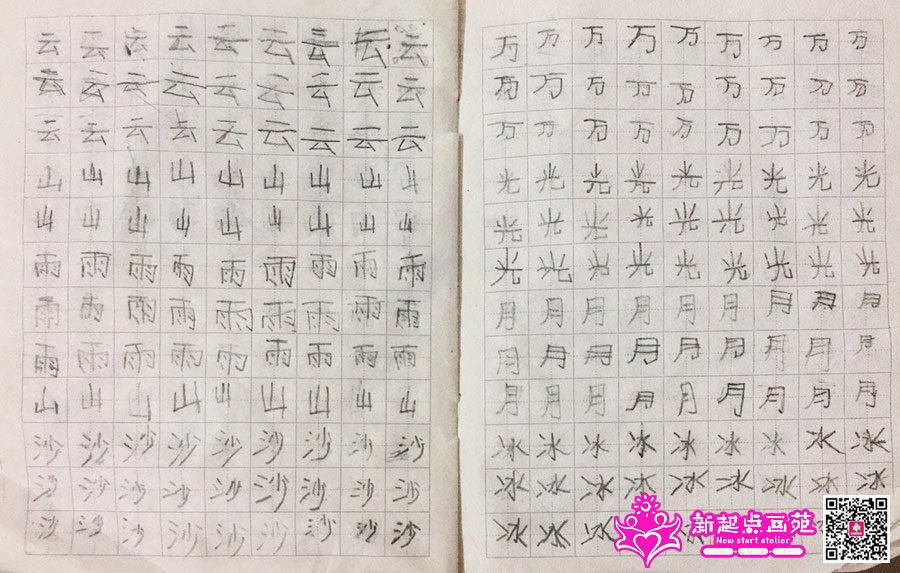 云云云云云云云云云
云云云云云云云云云
云云云云云云云云云
山山山山山山山山山
山山山山山山山山山
雨雨雨雨雨雨雨雨雨
雨雨雨雨雨雨雨雨雨
雨雨雨雨雨雨雨雨雨
山山山山山山山山山
沙沙沙沙沙沙沙沙沙
沙沙沙沙沙沙沙沙沙
沙沙沙沙沙沙沙沙沙
万万万万万万万万万
万万万万万万万万万
万万万万万万万万万
光光光光光光光光光
光光光光光光光光光
光光光光光光光光光
月月月月月月月月月
月月月月月月月月月
月月月月月月月月月
冰冰冰冰冰冰冰冰冰
冰冰冰冰冰冰冰冰冰
冰冰冰
新起点画苑
New start atelier